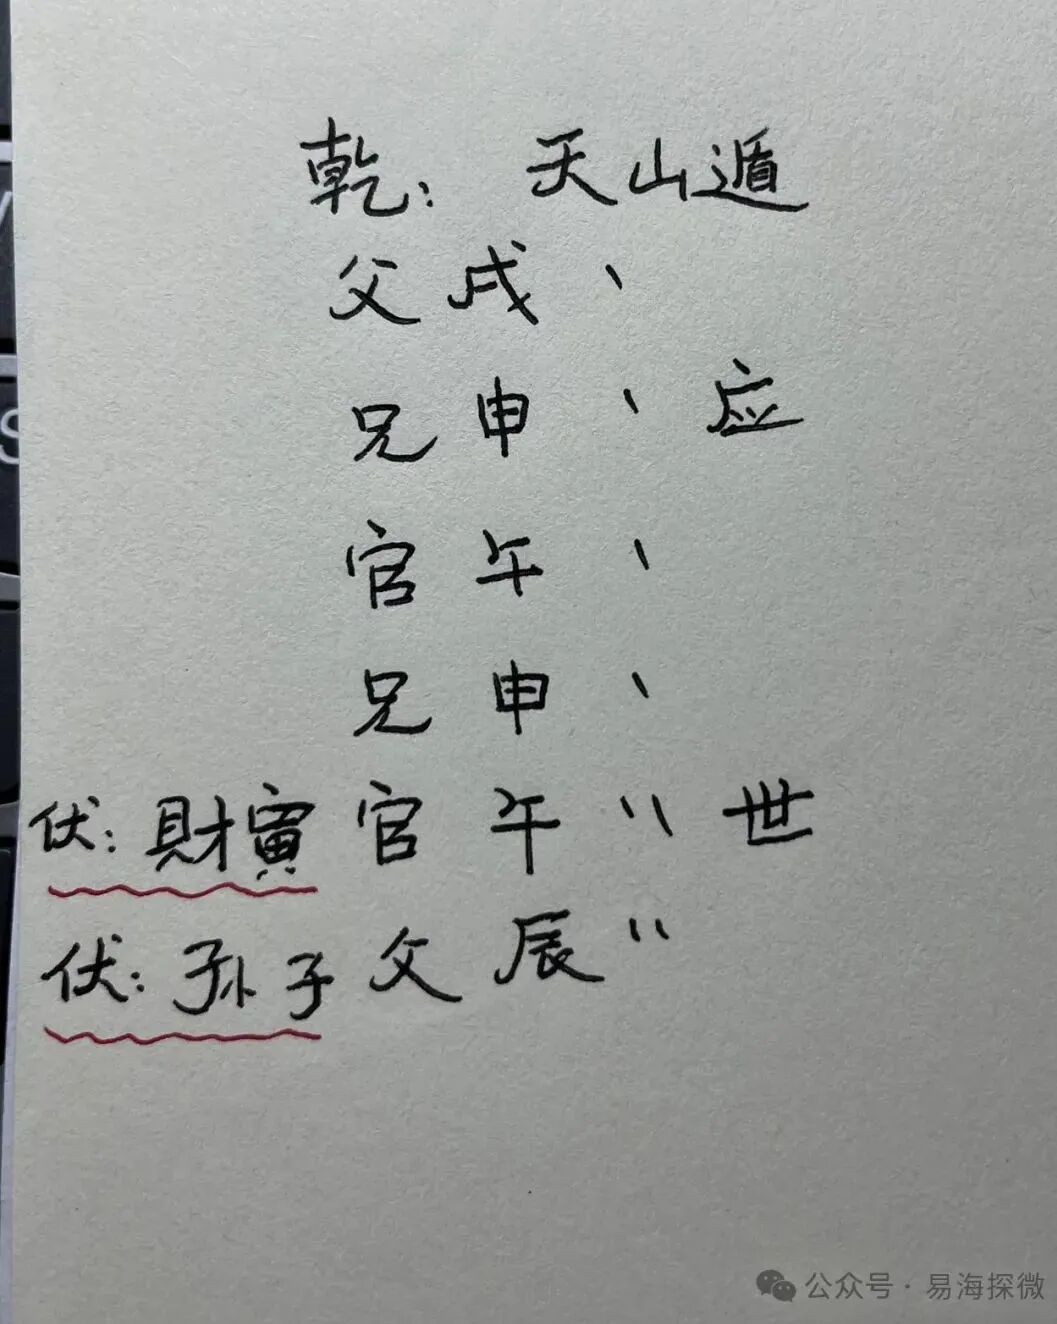 乾: 天山遁
父 戌 、
兄 申 、 应
官 午 、
兄 申 、
伏: 財寅 官 午 、、 世
伏: 孙子 父 辰 、、
公众号 · 易海探微